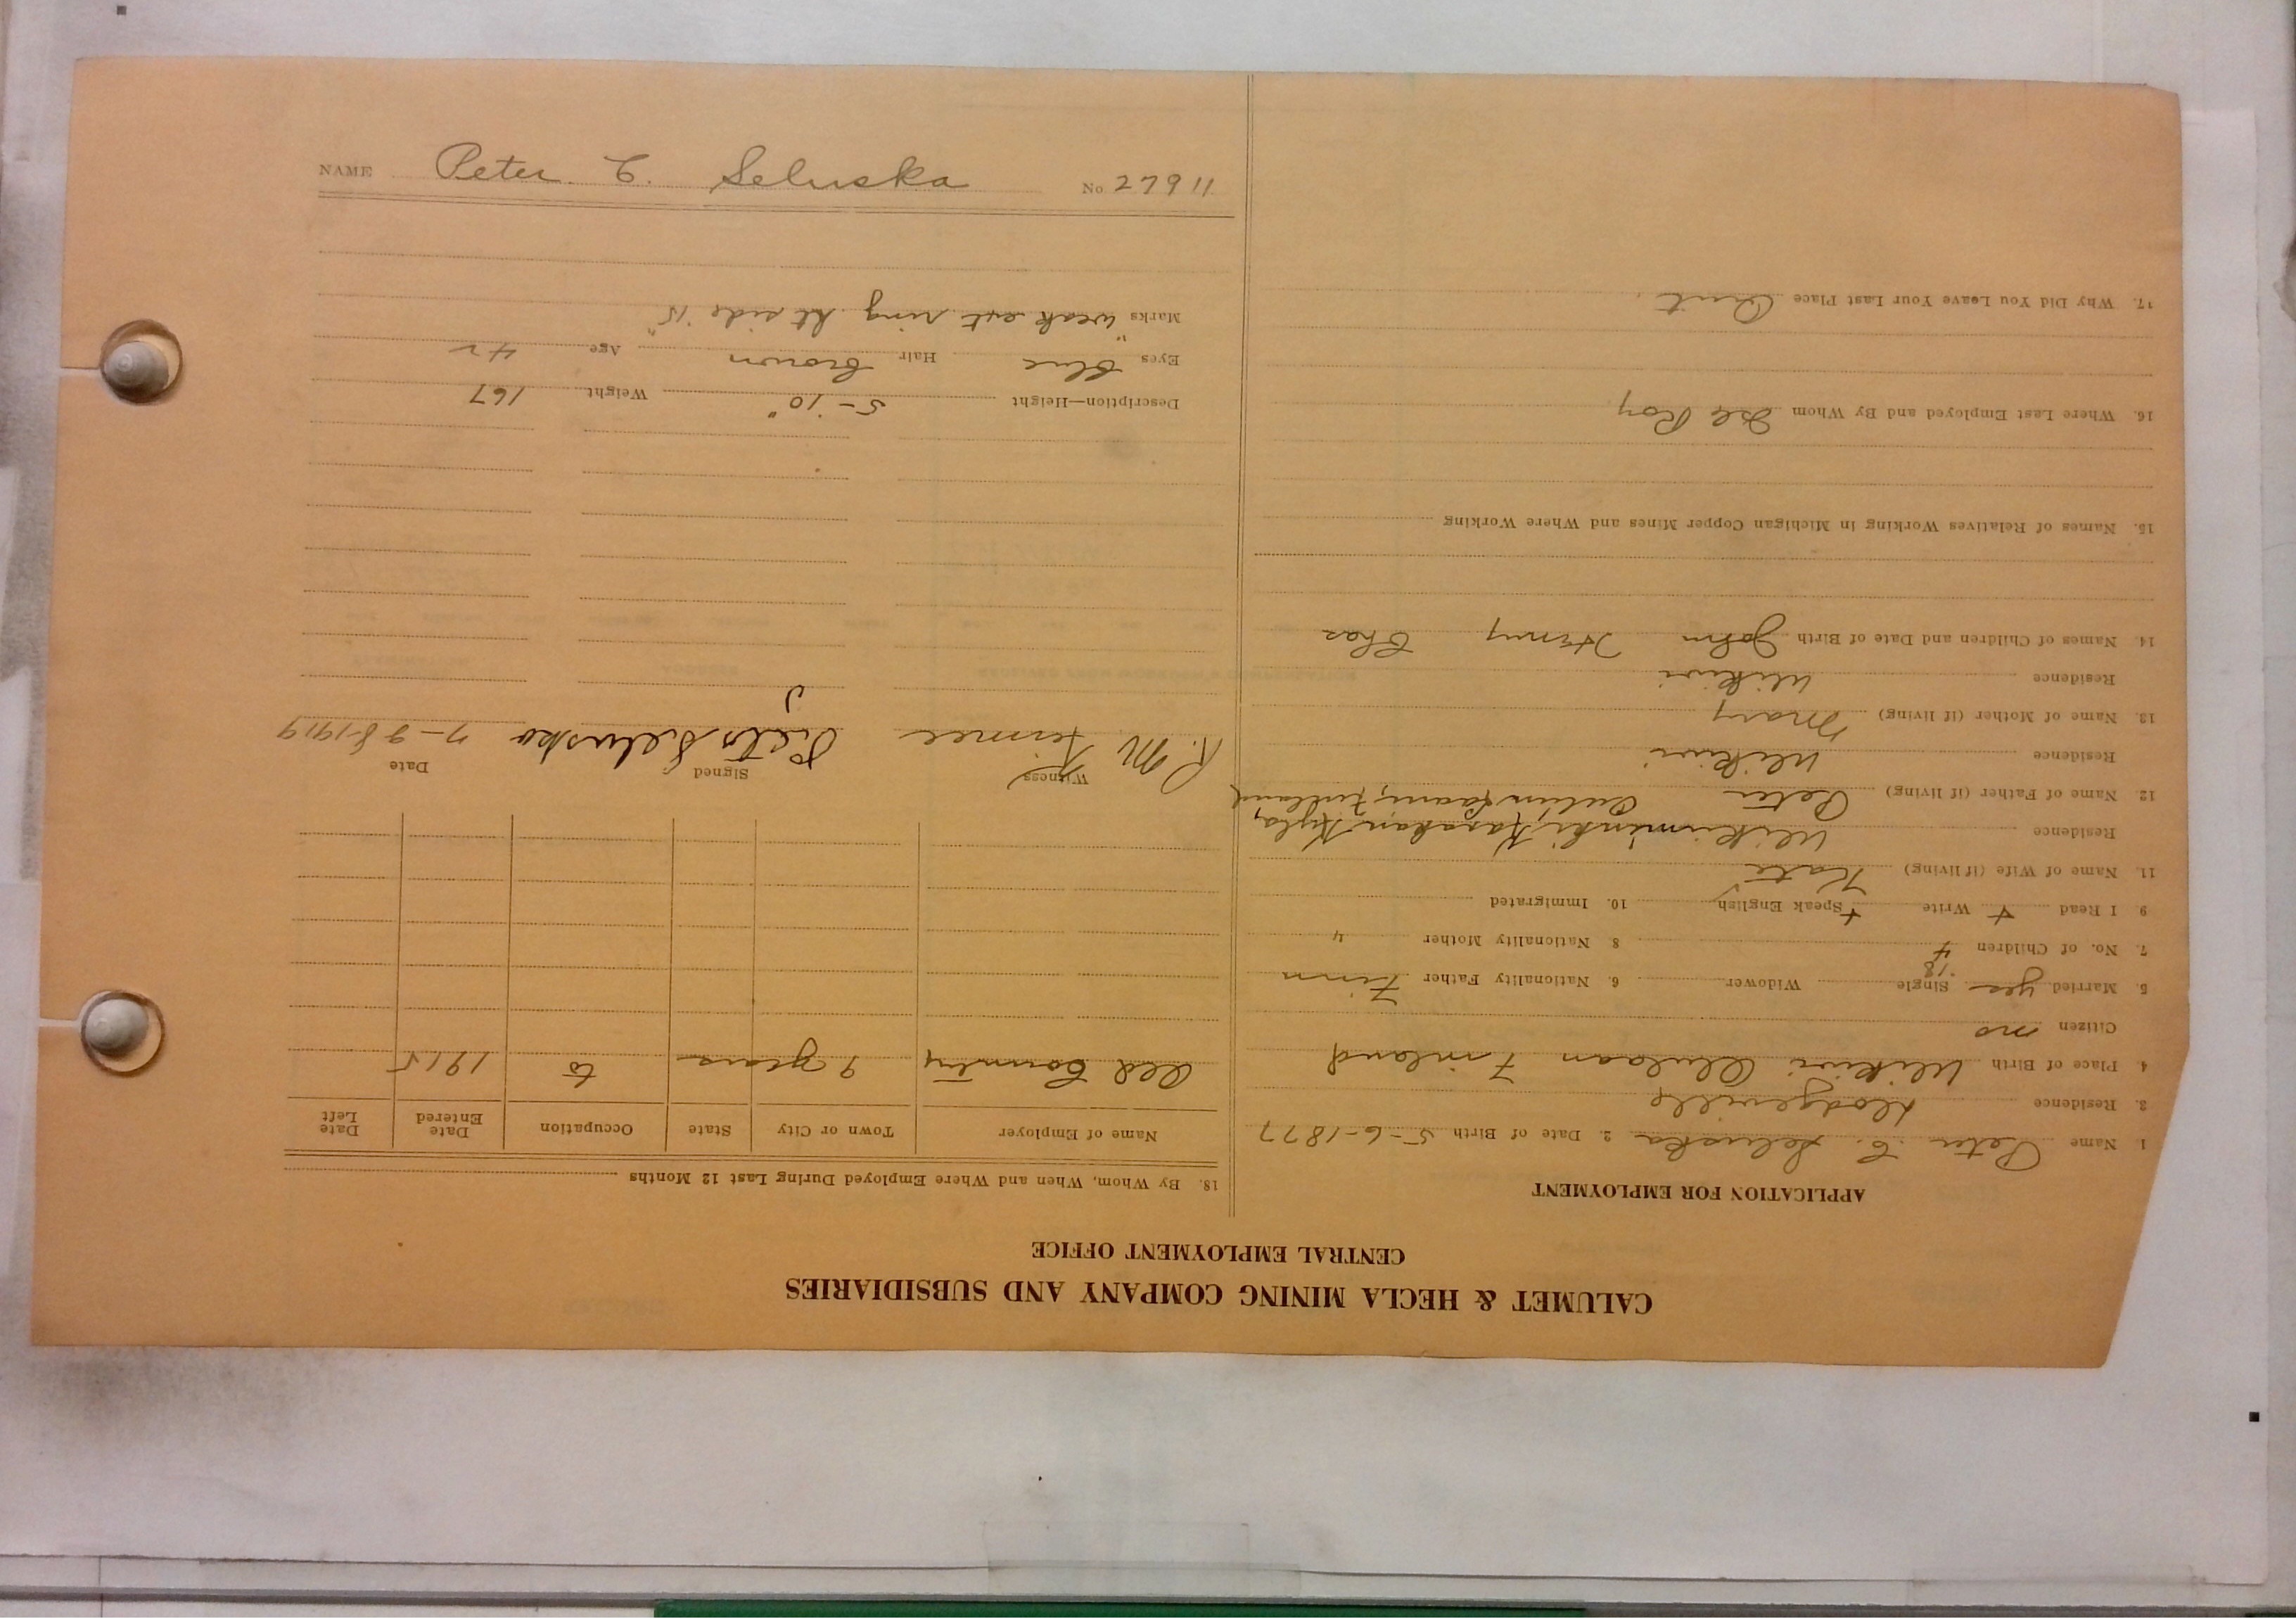 CALUMET & HECLA MINING COMPANY AND SUBSIDIARIES
CENTRAL EMPLOYMENT OFFICE
APPLICATION FOR EMPLOYMENT
1 Name Peter C. Seluska 2. Date of Birth 5-6-1877
3. Residence
4. Place of Birth Finland
Citizen no
5. Married yes Single 18 Widower 6. Nationality Father Finn
7. No. of Children 4 8 Nationality Mother "
9 I Read + Write + Speak English 10. Immigrated
11. Name of Wife (if living) Kate
Residence Finland
12. Name of Father (if living) Peter
Residence
13. Name of Mother (if living) Mary
Residence
14. Names of Children and Date of Birth John Henry Chas
15. Names of Relatives Working in Michigan Copper Mines and Where Working
16. Where Last Employed and By Whom Isle Roy
17. Why Did You Leave Your Last Place Quit
18. By Whom, When and Where Employed During Last 12 Months
Name of Employer Town or City State Occupation Date Entered Date Left
Old Country 9 years to 1915
Witness Signed Date
R. M. Seluska 1919
Description—Height 5-10" Weight 167
Eyes Blue Hair Brown Age 42
Marks "weak ext ring Rt side '15"
NAME Peter C. Seluska No 27911